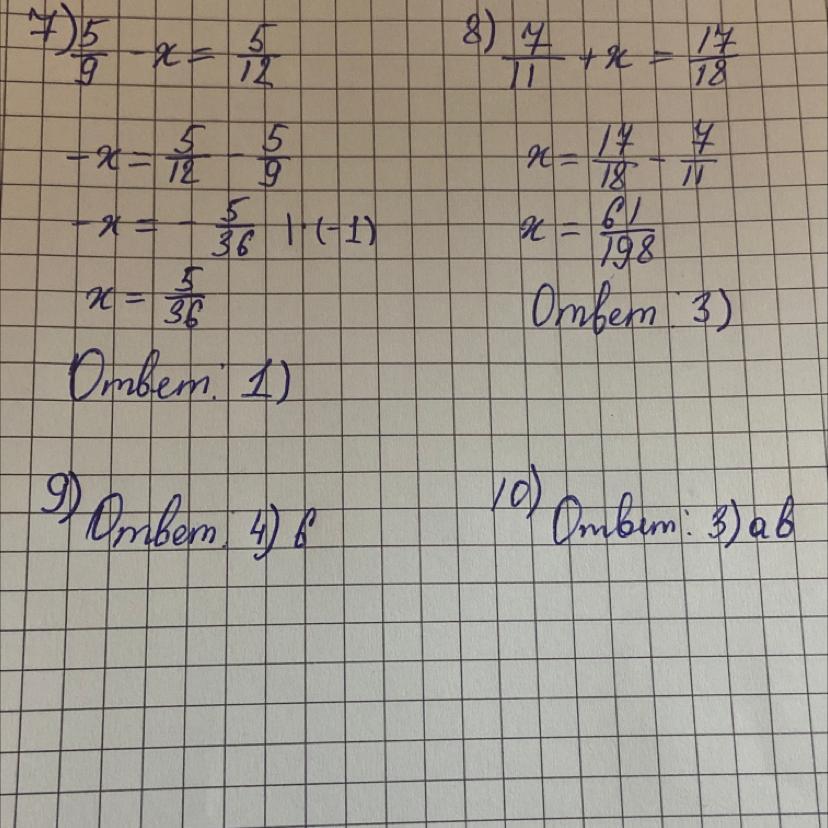 7) 5/9 - x = 5/12
-x = 5/12 - 5/9
-x = - 5/36 | · (-1)
x = 5/36
Ответ: 1)
8) 7/11 + x = 17/18
x = 17/18 - 7/11
x = 61/198
Ответ: 3)
9) Ответ: 4) b
10) Ответ: 3) ab